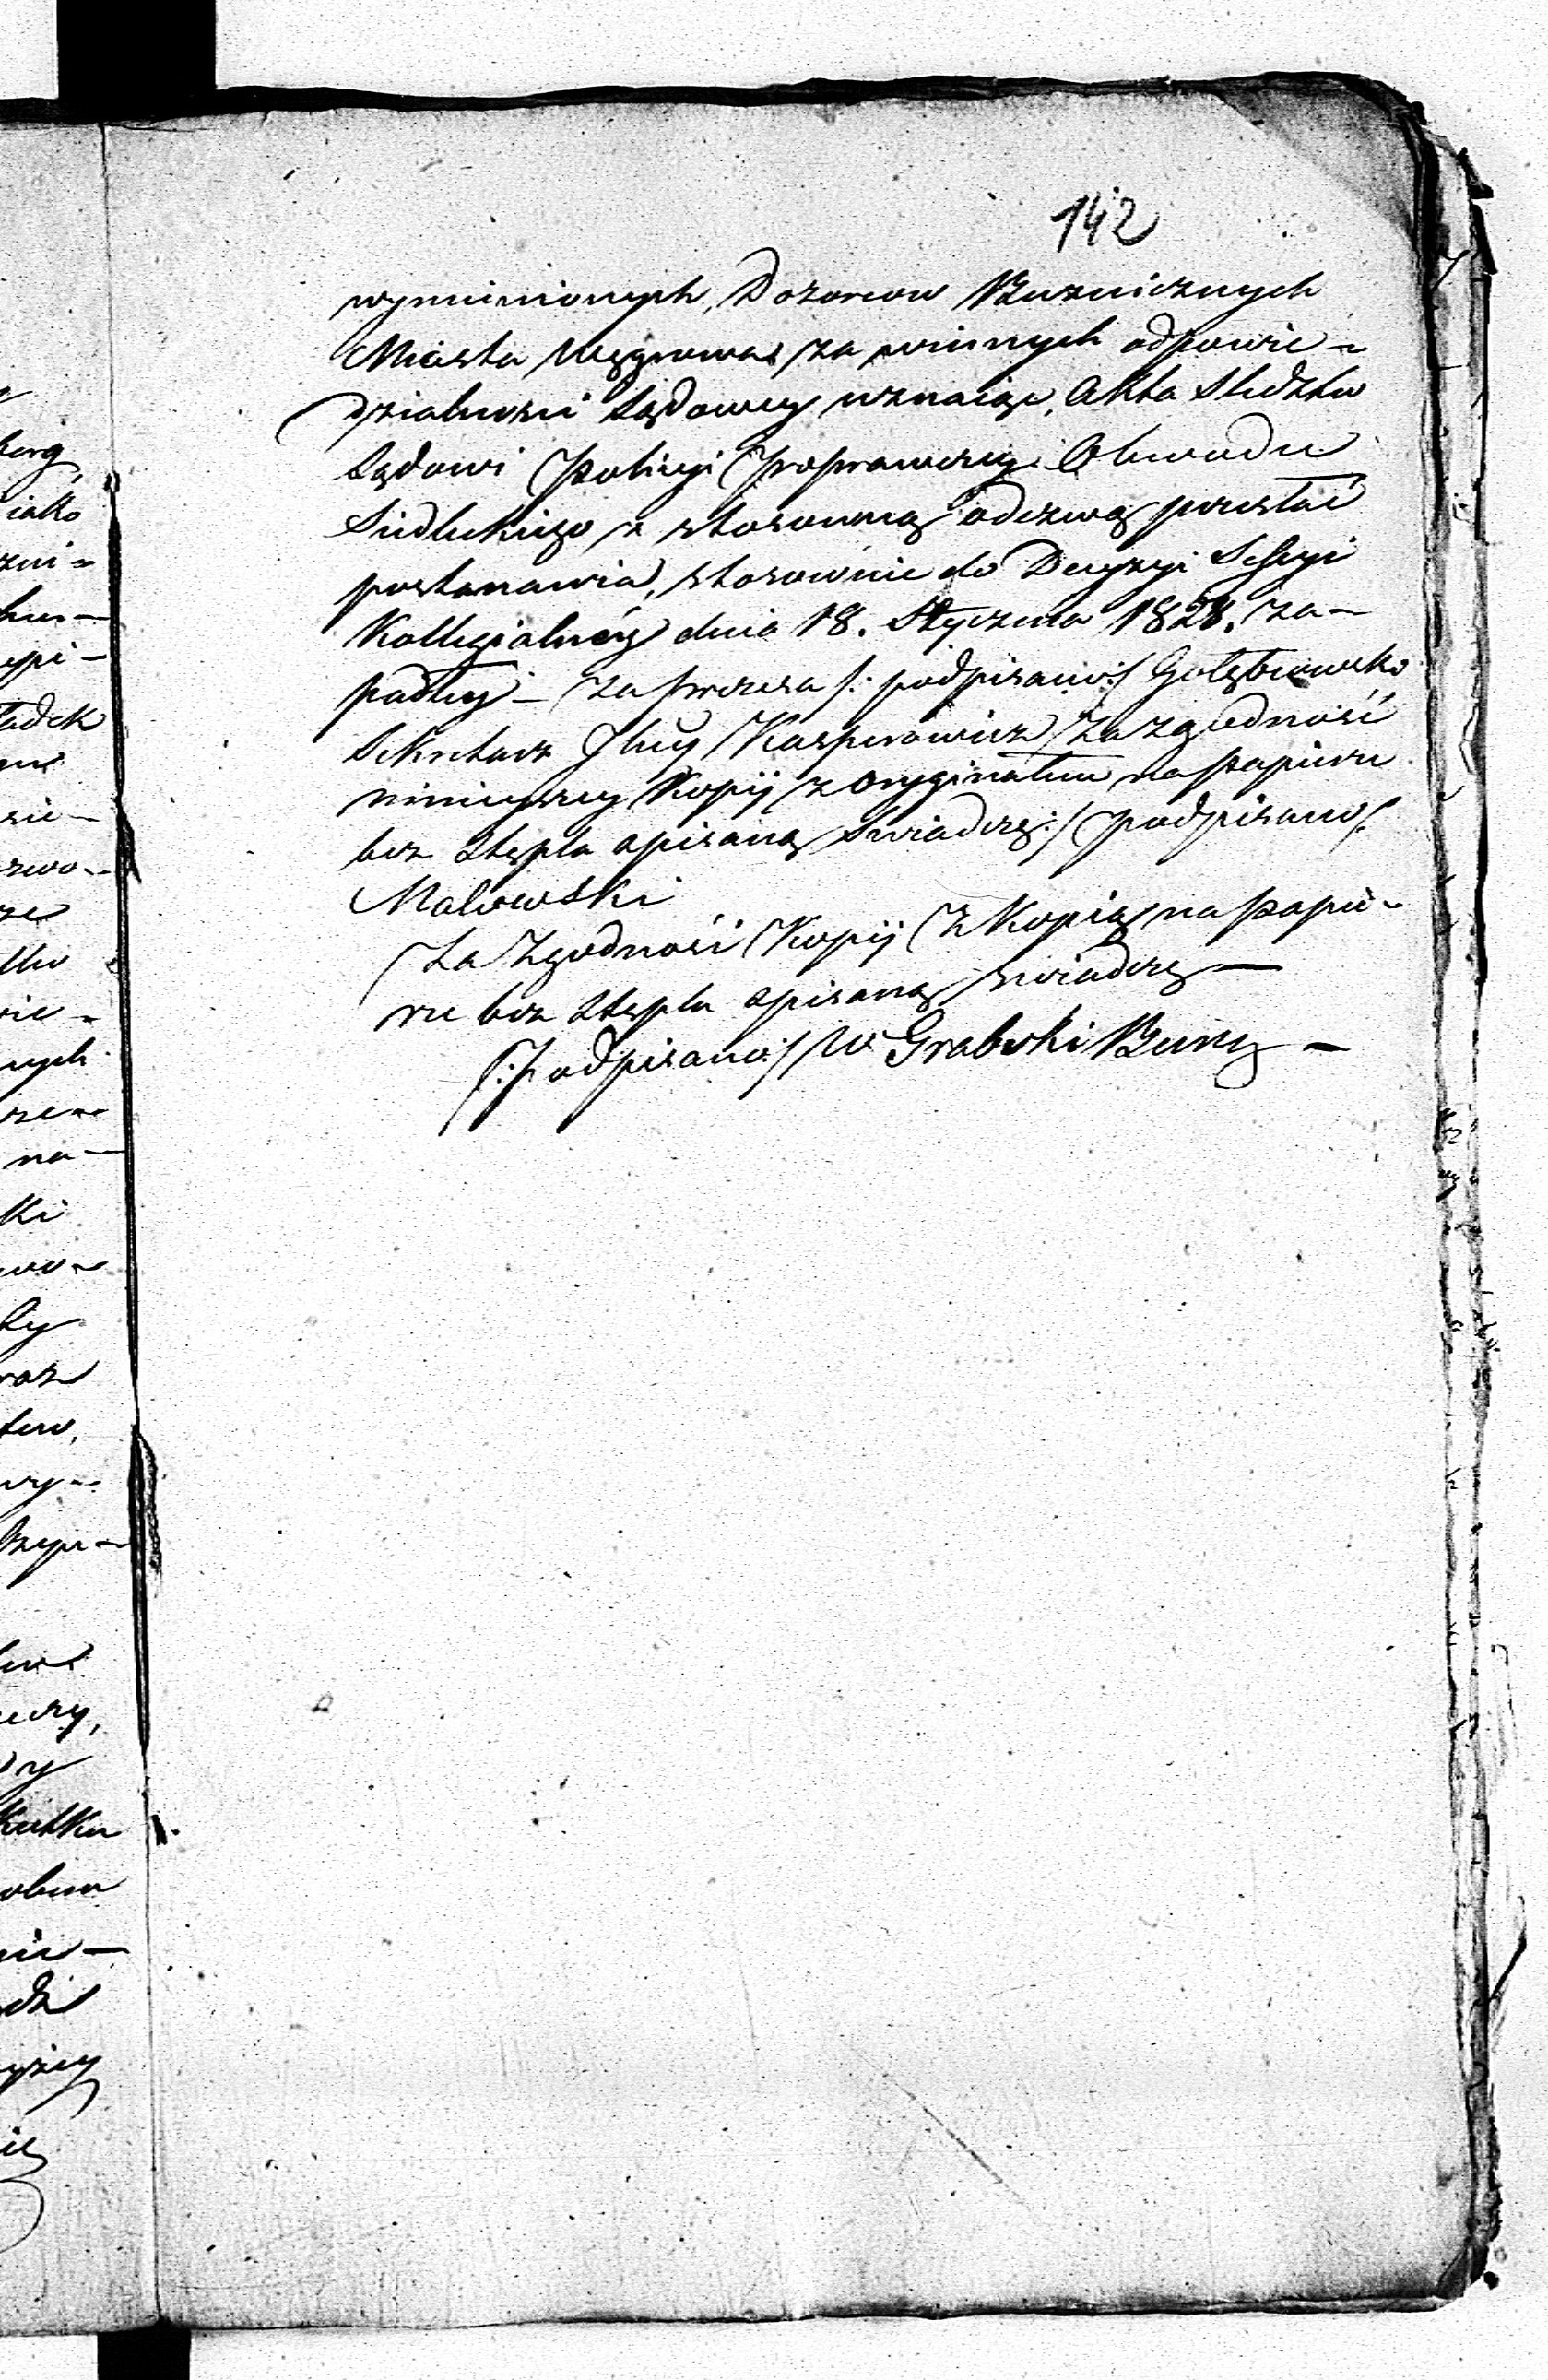 142
wymienionych, Dozorcow Bużnicznych
Miasta Węgrowa za winnych odpowie-
dzialności Sądowey uznaiąc, Akta Sledztw
Sądowi Policyi Poprawczey Obwodu
Siedleckiego z stosowną odezwą przesłać
postanawia, stosownie do Decyzyi Sessyi
Kollegialnéy dnia 18. Stycznia 1828. za-
padłey – za Prezesa /: podpisano:/ Gołębiowski
Sekretarz Jlny Kasperowicz Za zgodność
ninieyszey Kopij z Oryginałem na papierze
bez Stępla opisaną Swiadczę :/ Podpisano/:
Malewski
Za Zgodność Kopij Z Kopią na Papie-
rze bez Stępla opisaną swiadczę —
/: Podpisano:/ W Grabski Burm –
borg,
iako
zni-
ypi-
adek
sie-
zwo-
ze
nych
na-
ki
wo-
raz
wy-
dy
skutku